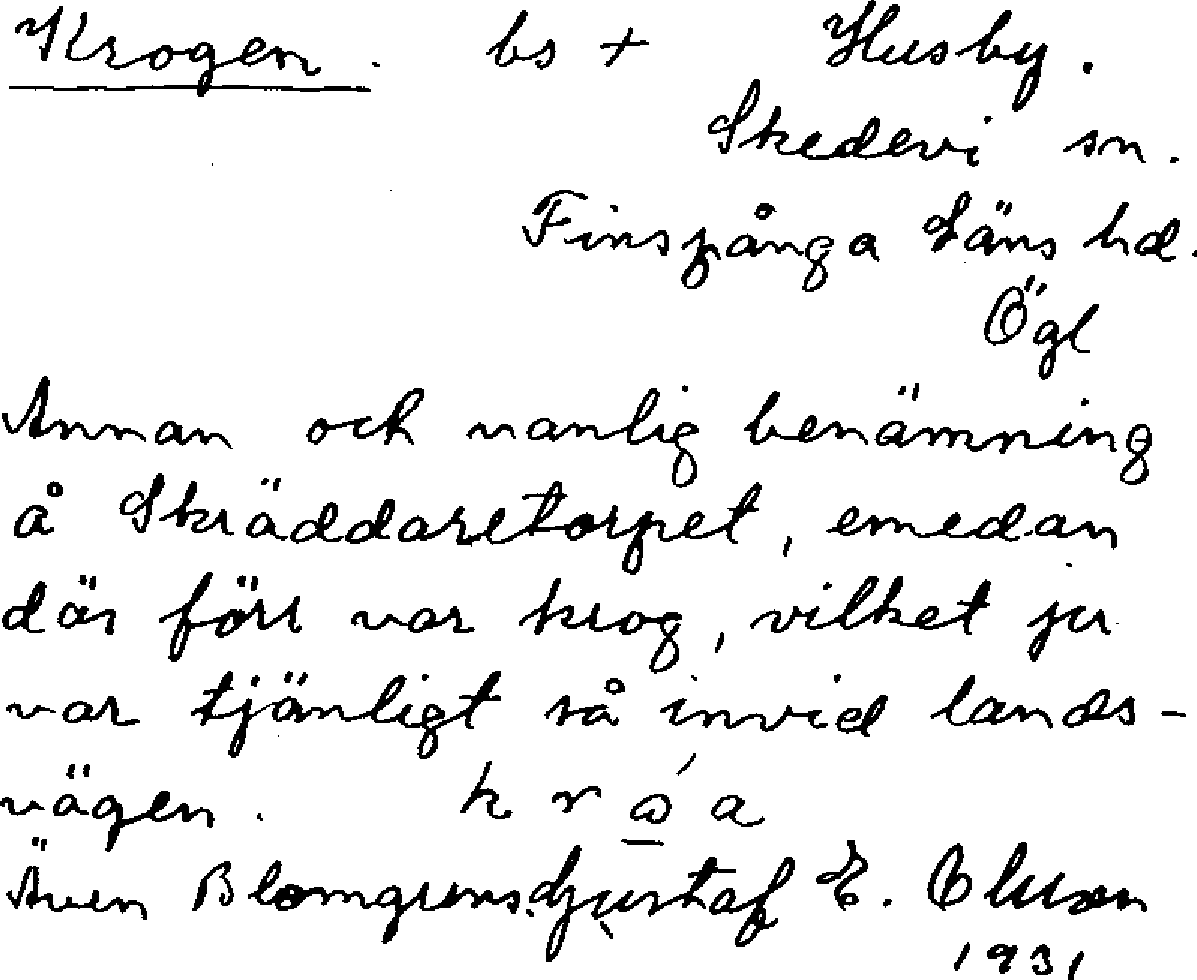 Krogen. bs + Husby.
Skedevi sn.
Finspånga Läns hd.
Ögl
Annan och vanlig benämning
å Skräddaretorpet, emedan
där förr var krog, vilket ju
var tjänligt så invid lands-
vägen. k r a
Även Blomgrens. Gustaf E. Olsson
1931